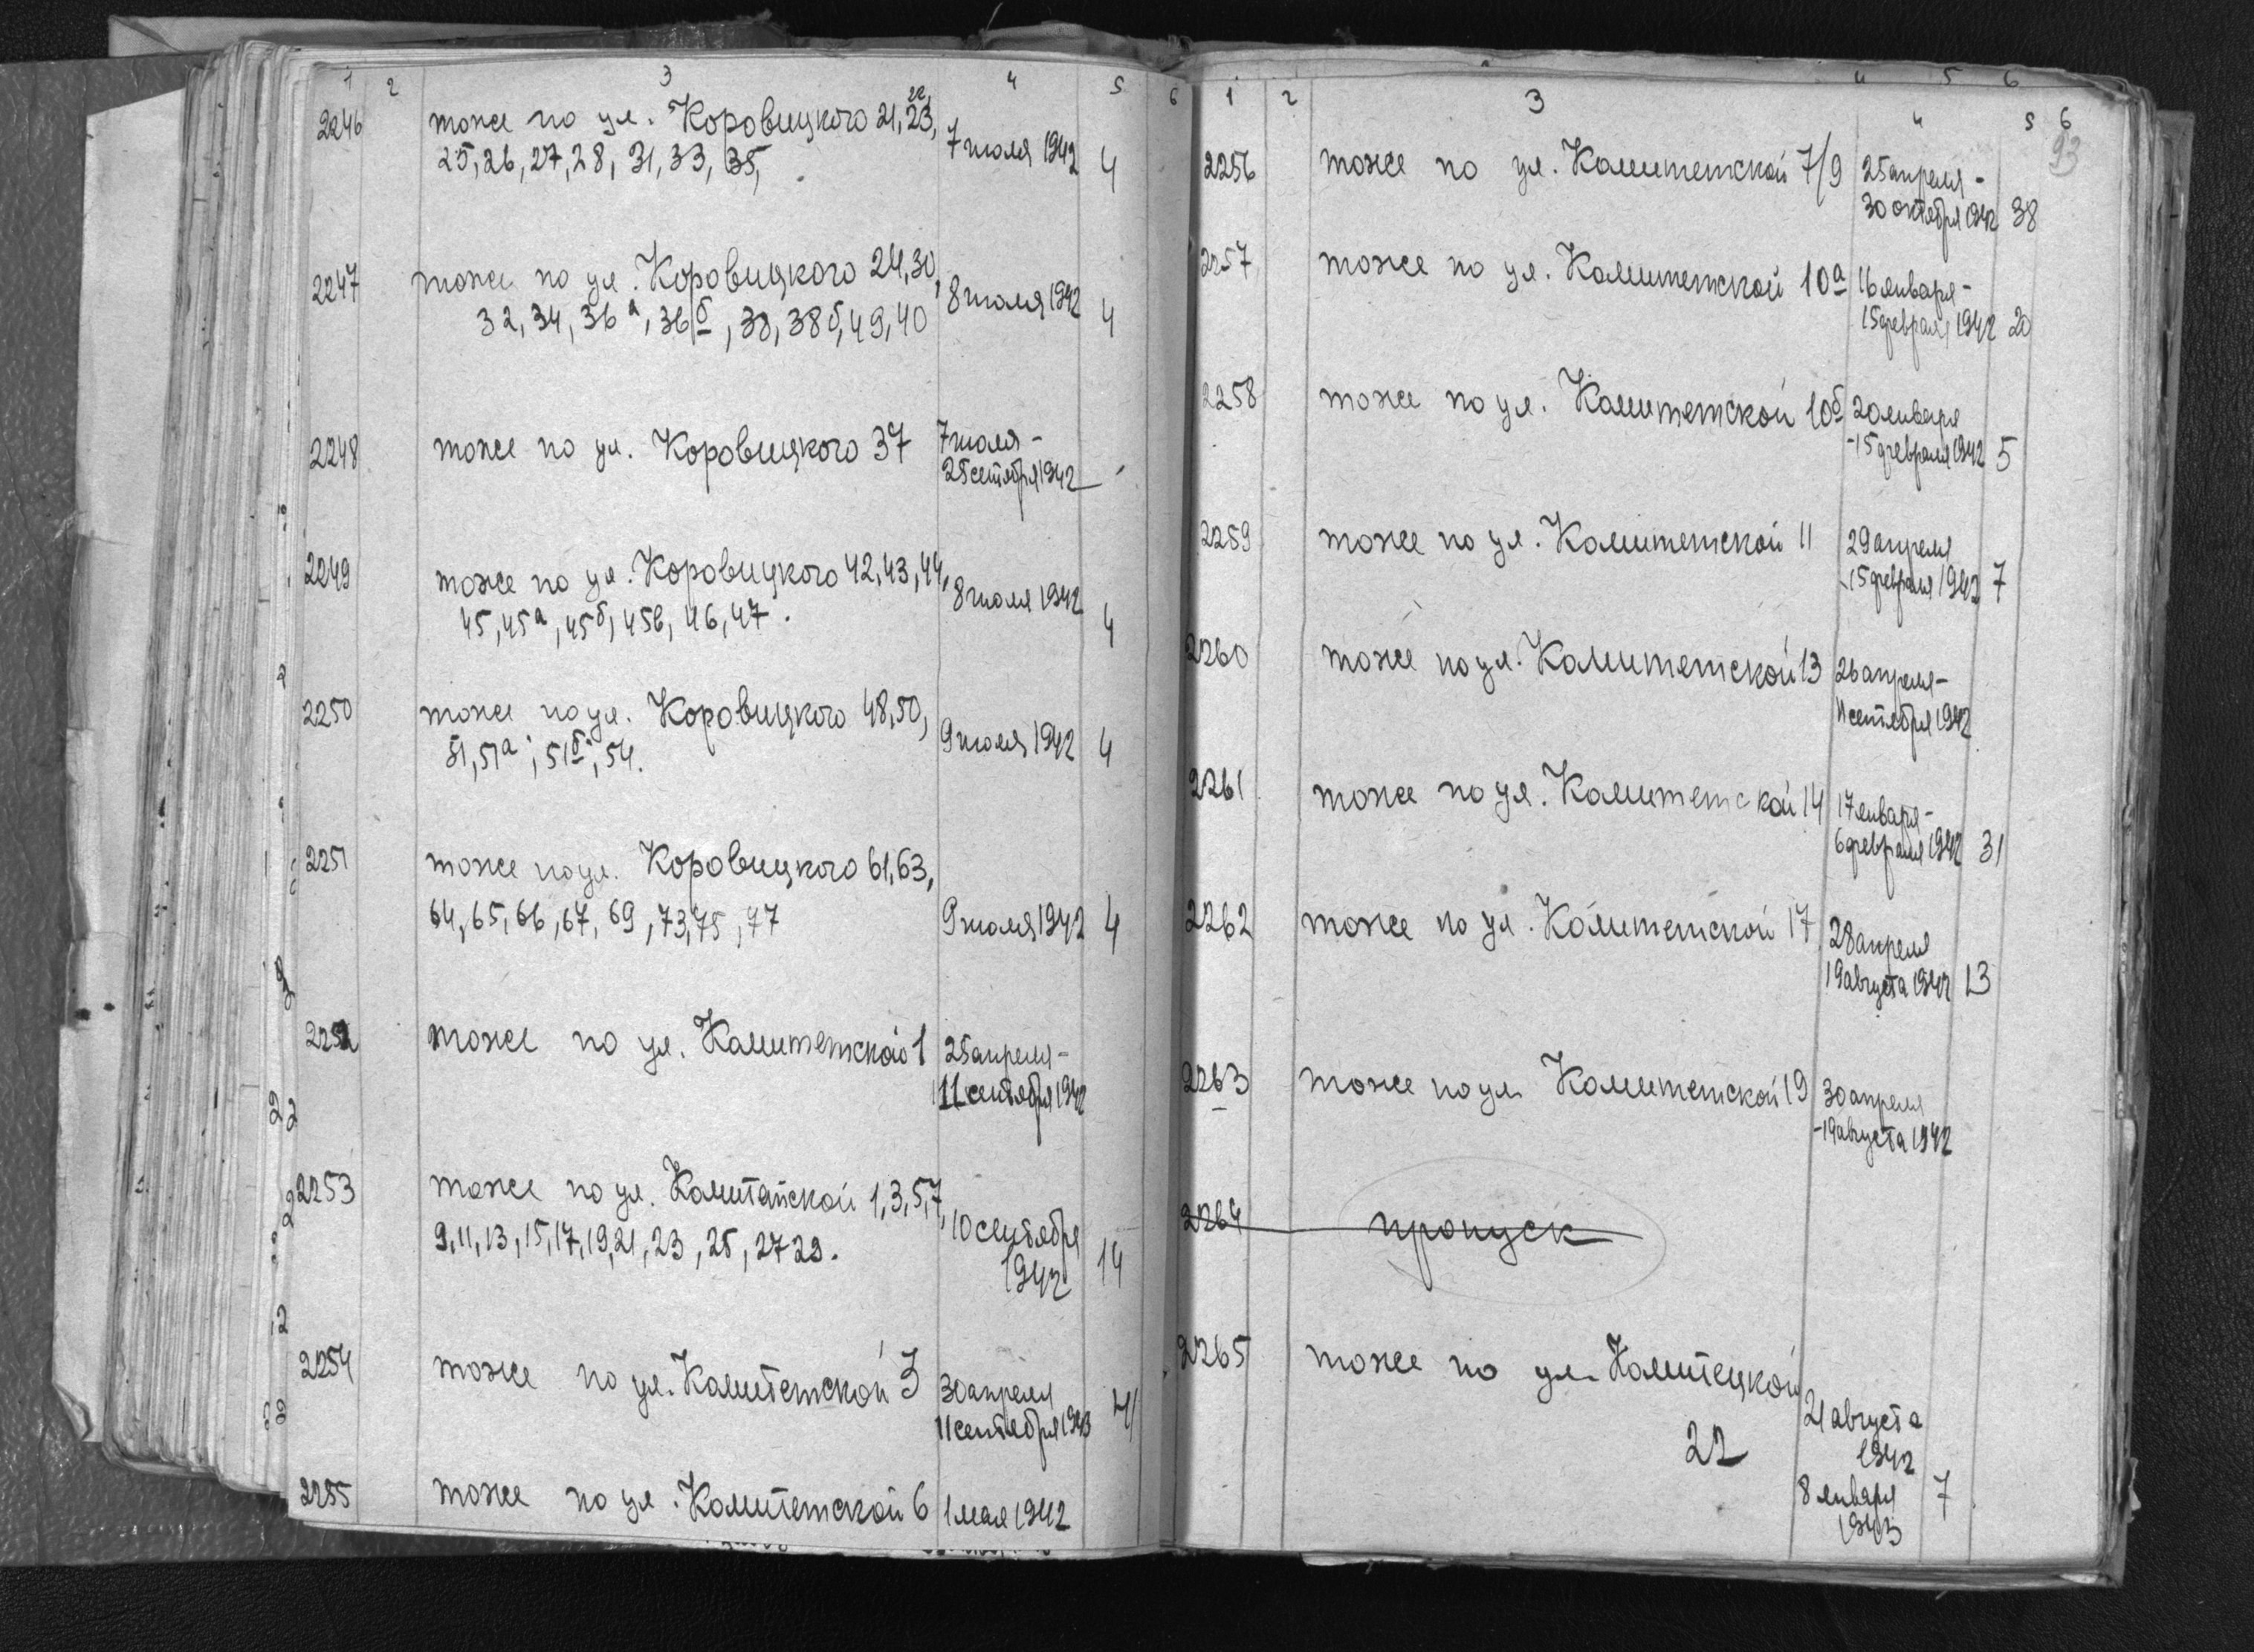 1 2 3 4 5 6
2246 тоже по ул. Коровицкого 21, 22, 23, 7 июля 1942 4
25, 26, 27, 28, 31, 33, 35,
2247 тоже по ул. Коровицкого 24, 30, 8 июля 1942 4
32, 34, 36а, 36б, 38, 38б, 49, 40
2248 тоже по ул. Коровицкого 37 7 июля -
25 сентября 1942
2249 тоже по ул. Коровицкого 42, 43, 44, 8 июля 1942 4
45, 45а, 45б, 45в, 46, 47.
2250 тоже по ул. Коровицкого 48, 50, 9 июля 1942 4
51, 51а, 51б, 54.
2251 тоже по ул. Коровицкого 61, 63,
64, 65, 66, 67, 69, 73, 75, 77 9 июля 1942 4
2252 тоже по ул. Комитетской 1 25 апреля -
11 сентября 1942
2253 тоже по ул. Комитетской 1, 3, 5, 7,
9, 11, 13, 15, 17, 19, 21, 23, 25, 27 29. 10 сентября
1942 14
2254 тоже по ул. Комитетской 3 30 апреля
11 сентября 1943
2255 тоже по ул. Комитетской 6 1 мая 1942
4 5 6
1 2 3 4 5 6
93
2256 тоже по ул. Комитетской 7/9 25 апреля -
30 октября 1942 38
2257 тоже по ул. Комитетской 10а 16 января -
15 февраля 1942 20
2258 тоже по ул. Комитетской 10б 20 января
-15 февраля 1942 5
2259 тоже по ул. Комитетской 11 29 апреля
15 февраля 1942 7
2260 тоже по ул. Комитетской 13 26 апреля -
11 сентября 1942
2261 тоже по ул. Комитетской 14 17 января -
6 февраля 1942 31
2262 тоже по ул. Комитетской 17 28 апреля
19 августа 1942 13
2263 тоже по ул Комитетской 19 30 апреля
-19 августа 1942
2264 пропуск
2265 тоже по ул. Комитецкой
22 21 августа
1942
8 января 7
1943